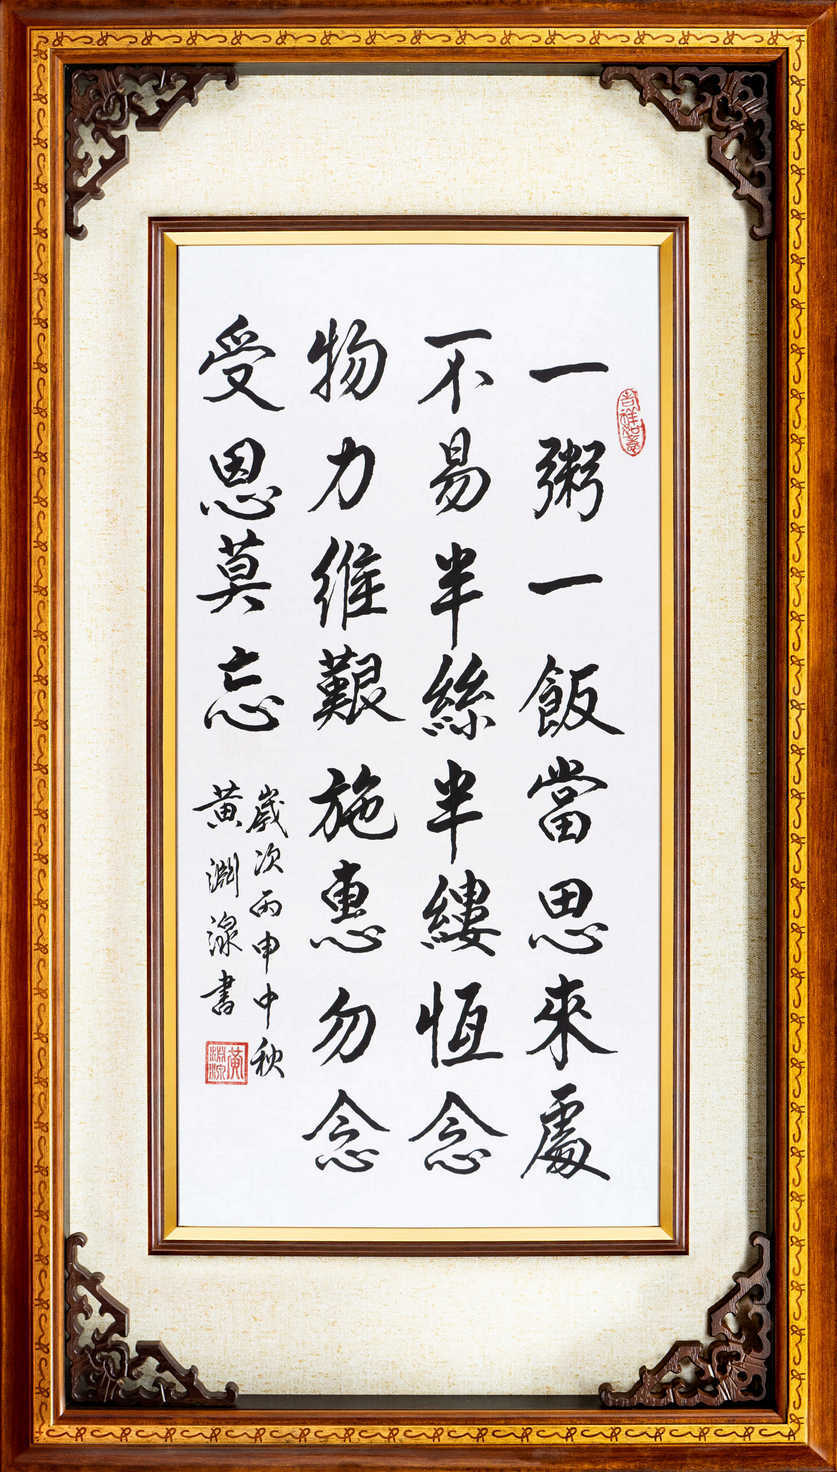 一粥一飯當思來處
不易半絲半縷恆念
物力維艱施惠勿念
受恩莫忘
歲次丙申中秋
黃淵湶書
吉祥如意